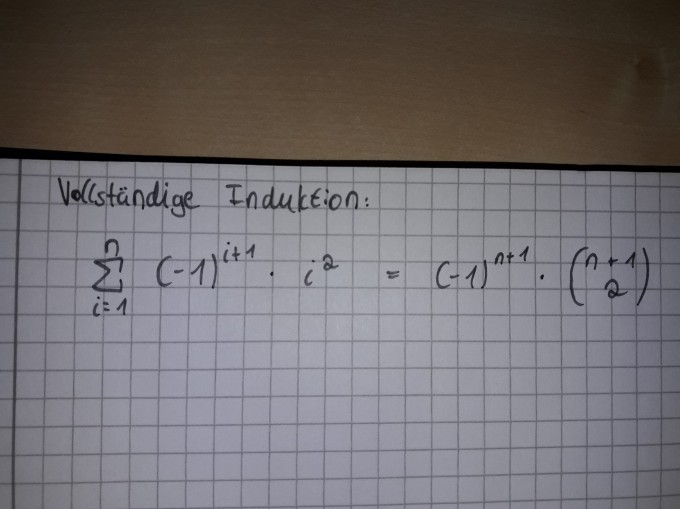 Vollständige Induktion:
n
∑ (-1)^{i+1} · i² = (-1)^{n+1} · \binom{n+1}{2}
i=1